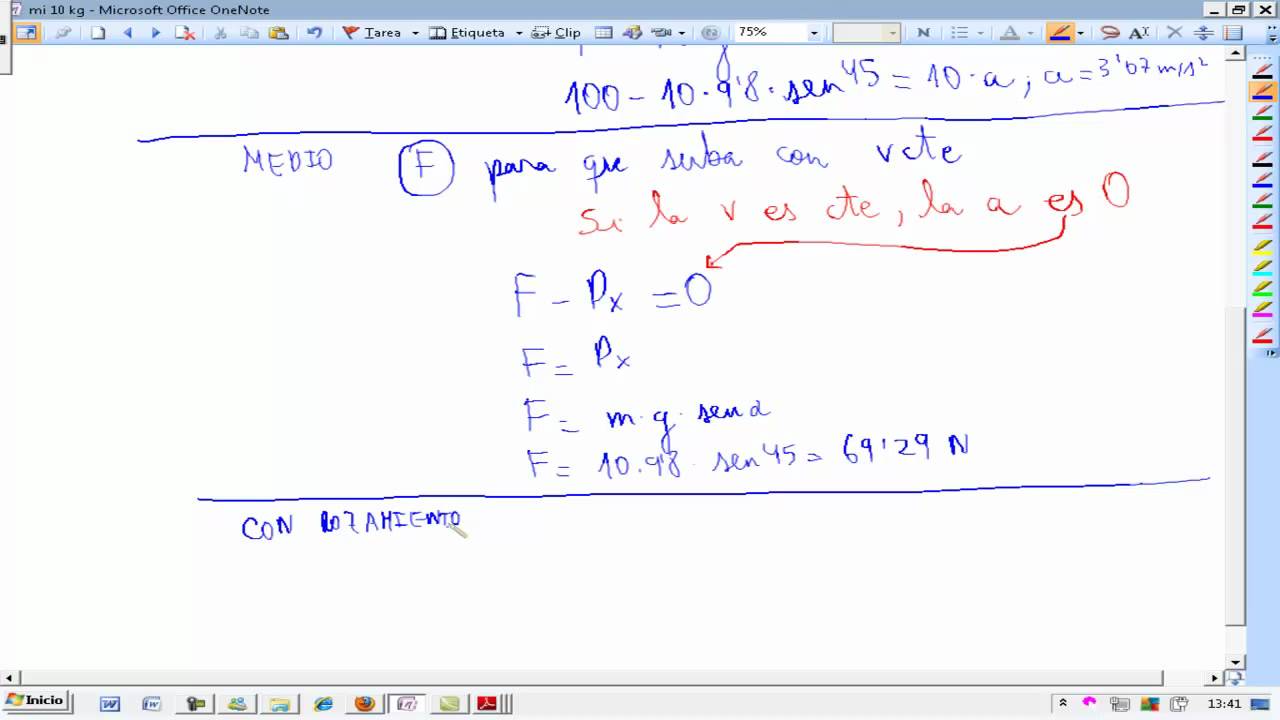 mi 10 kg - Microsoft Office OneNote
Tarea Etiqueta Clip 75% N A
100 - 10·9'8·sen45 = 10·a; a = 3'07 m/s²
MEDIO F para que suba con vcte
Si la v es cte, la a es 0
F - Px = 0
F = Px
F = m·g·senα
F = 10·9'8·sen45 = 69'29 N
CON ROZAMIENTO
Inicio 13:41